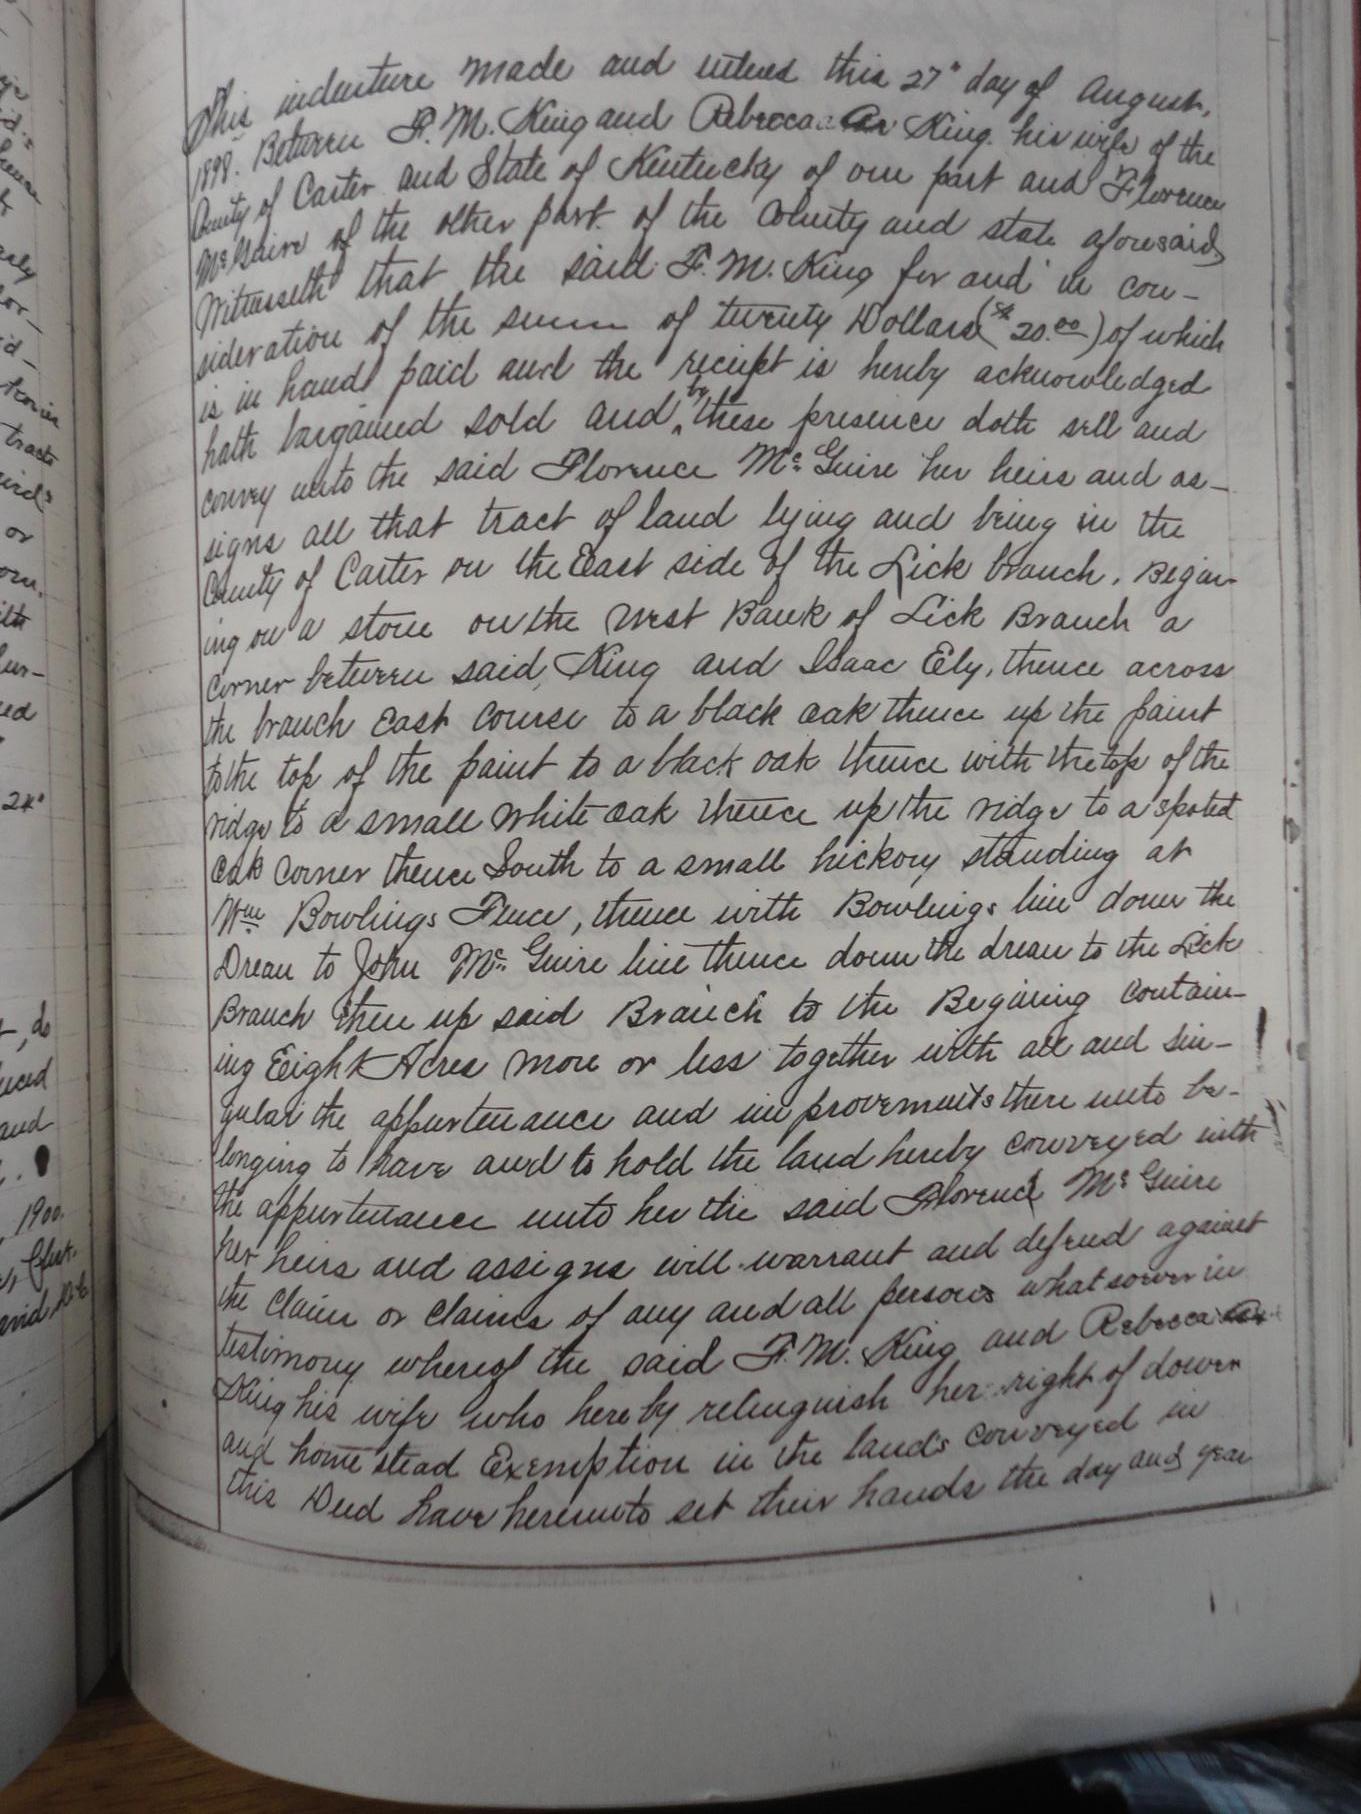 This indenture made and entered this 27" day of August,
1898. Between F. M. King and Rebecca King his wife of the
County of Carter and State of Kentucky of one part and Florence
Mc Guire of the other part of the County and state aforesaid,
Witnesseth that the said F. M. King for and in con-
sideration of the sum of twenty Dollars ($20.00) of which
is in hand paid and the reciept is hereby acknowledged
hath bargained sold and by these presence doth sell and
convey unto the said Florence Mc Guire her heirs and as-
signs all that tract of land lying and being in the
County of Carter on the East side of the Lick branch. Begin-
ing on a stone on the West Bank of Lick Branch a
corner between said King and Isaac Ely, thence across
the branch East course to a black oak thence up the paint
to the top of the paint to a black oak thence with the top of the
ridge to a small white oak thence up the ridge to a spoted
oak corner thence South to a small hickory standing at
Wm Bowlings Fence, thence with Bowlings line down the
Drean to John Mc Guire line thence down the drean to the Lick
Branch then up said Branch to the Begining contain-
ing Eight Acres more or less together with all and sin-
gular the appurtenance and improvements there unto be-
longing to have and to hold the land hereby conveyed with
the appurtenance unto her the said Florence Mc Guire
her heirs and assigns will warrant and defend against
the claim or claims of any and all persons whatsoever in
testimony whereof the said F. M. King and Rebecca
King his wife who hereby relinguish her right of dower
and homestead Exemption in the lands conveyed in
this Deed have hereunto set their hands the day and year